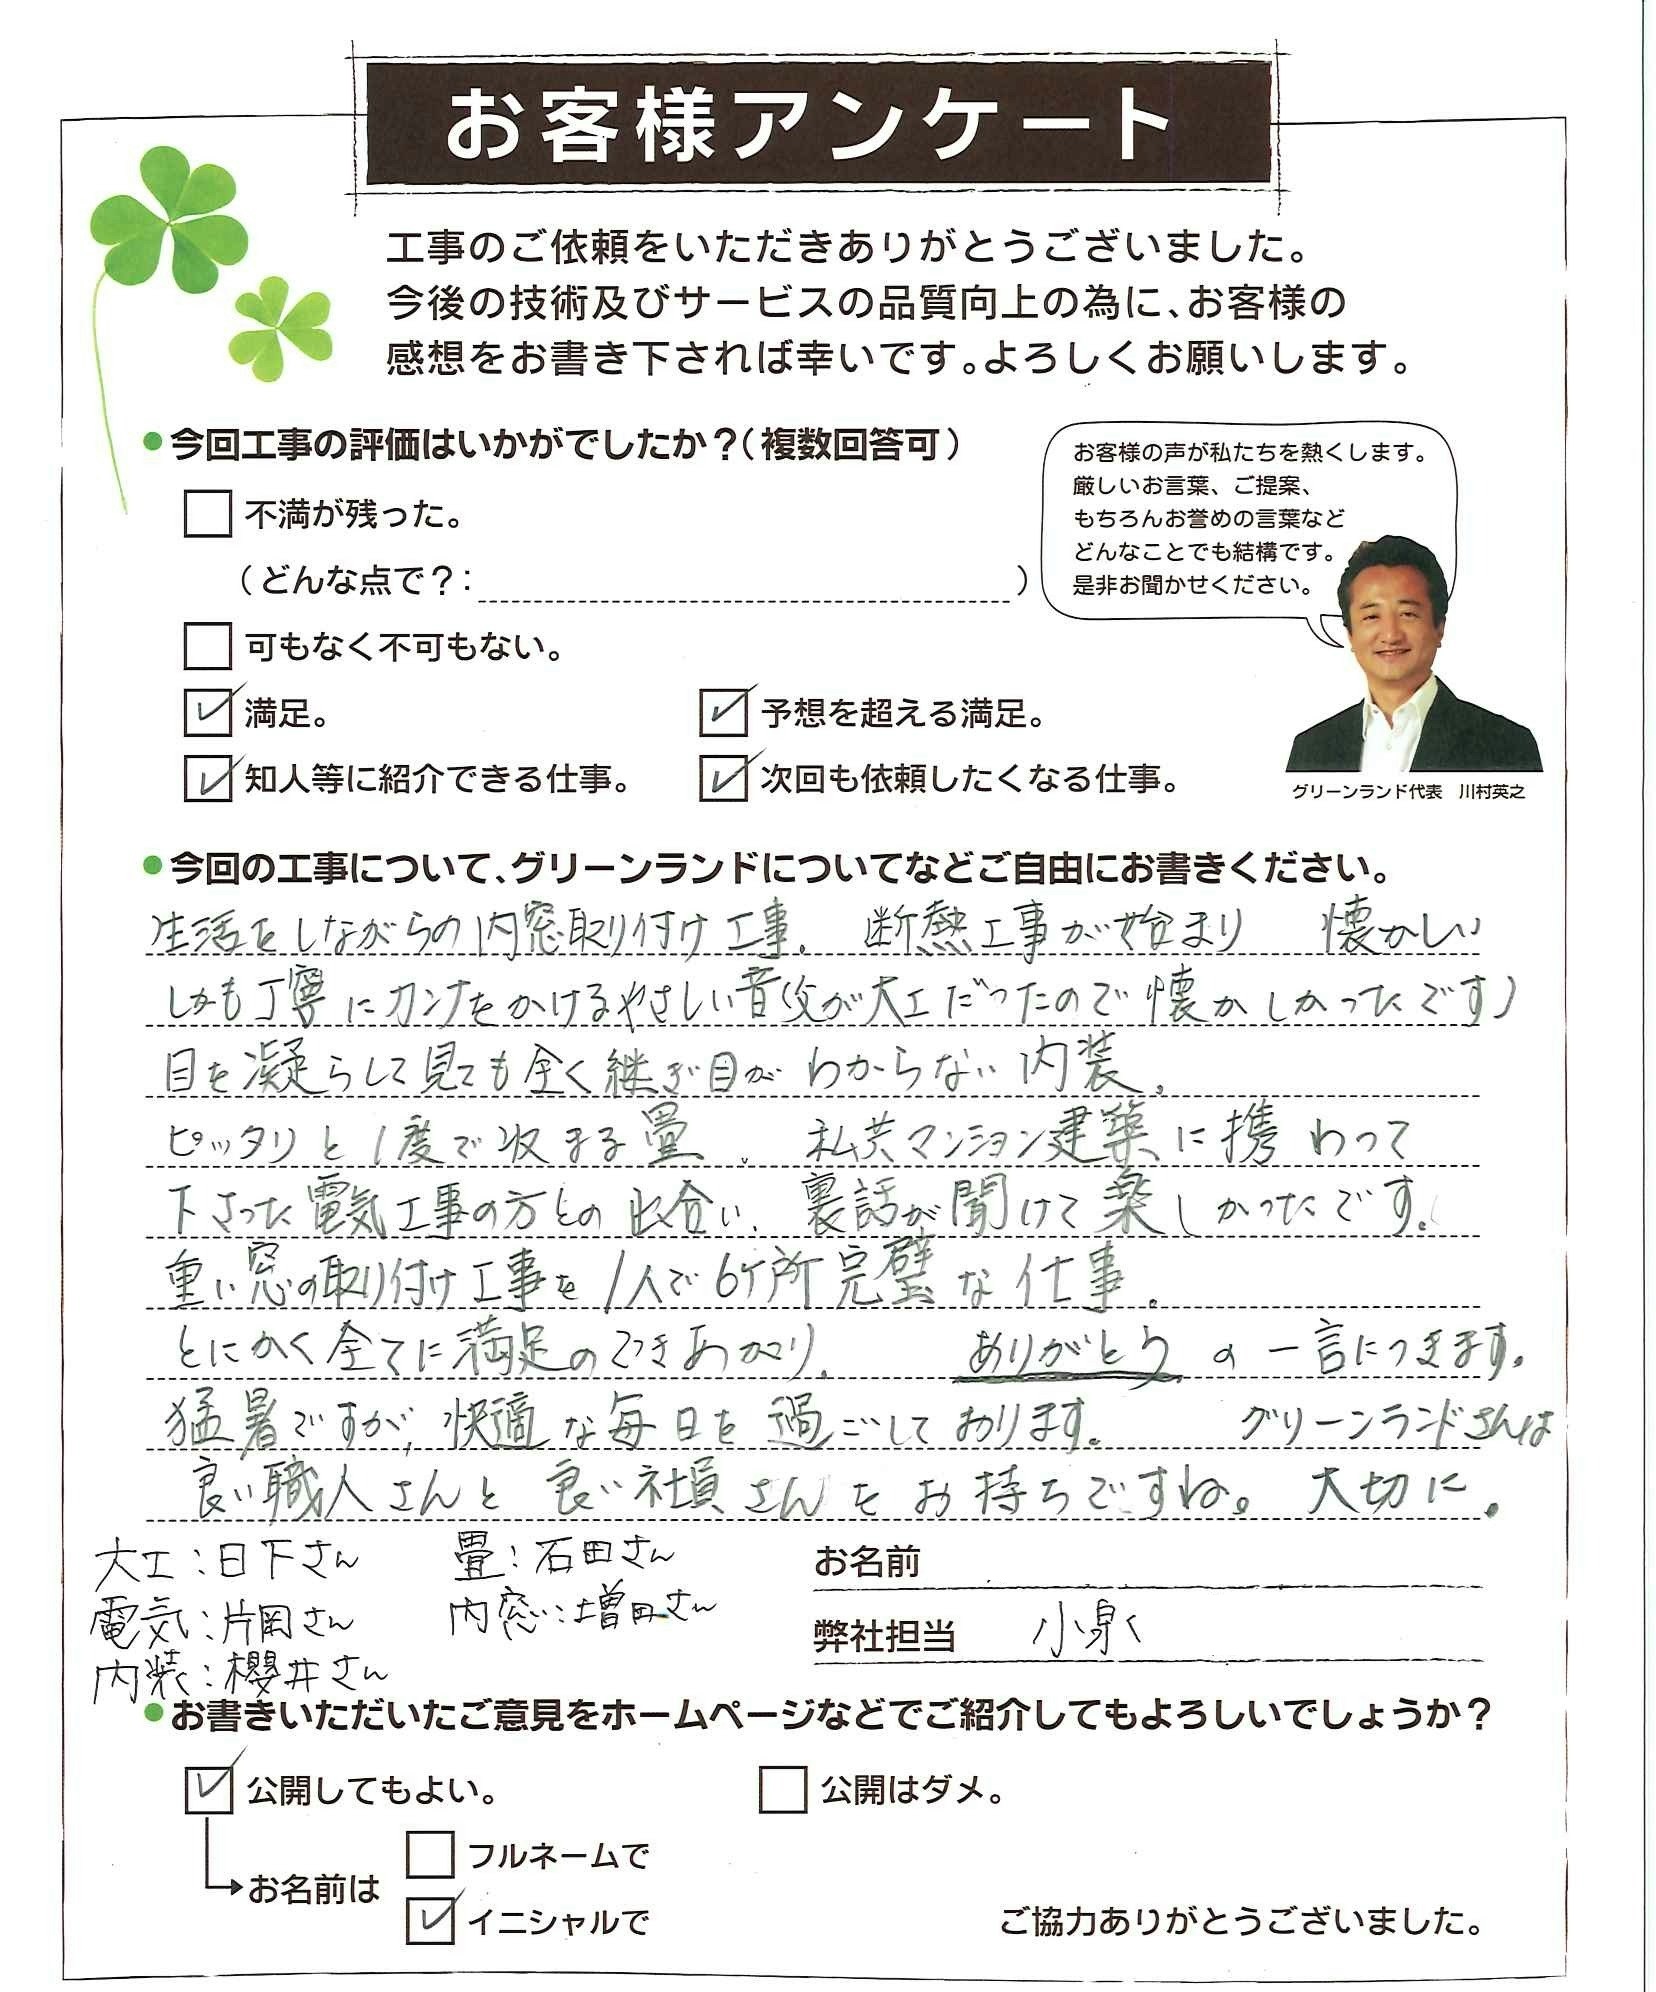 お客様アンケート
工事のご依頼をいただきありがとうございました。
今後の技術及びサービスの品質向上の為に、お客様の
感想をお書き下されば幸いです。よろしくお願いします。
●今回工事の評価はいかがでしたか？（複数回答可）
不満が残った。
（どんな点で？：　）
可もなく不可もない。
満足。
予想を超える満足。
知人等に紹介できる仕事。
次回も依頼したくなる仕事。
お客様の声が私たちを熱くします。
厳しいお言葉、ご提案、
もちろんお誉めの言葉など
どんなことでも結構です。
是非お聞かせください。
グリーンランド代表　川村英之
●今回の工事について、グリーンランドについてなどご自由にお書きください。
生活をしながらの内窓取り付け工事。断熱工事が始まり　懐かしい
しかも丁寧にカンナをかけるやさしい音（父が大工だったので懐かしかったです）
目を凝らして見ても全く継ぎ目がわからない内装。
ピッタリと1度で収まる畳。　私共マンション建築に携わって
下さった電気工事の方との出合い、裏話が聞けて楽しかったです。
重い窓の取り付け工事を1人で6ケ所完璧な仕事。
とにかく全てに満足のできあがり。　ありがとうの一言につきます。
猛暑ですが、快適な毎日を過ごしております。　グリーンランドさんは
良い職人さんと良い社員さんをお持ちですね。大切に。
大工：日下さん　畳：石田さん
電気：片岡さん　内窓：増田さん
内装：櫻井さん
お名前
弊社担当　小泉
●お書きいただいたご意見をホームページなどでご紹介してもよろしいでしょうか？
公開してもよい。
公開はダメ。
お名前は
フルネームで
イニシャルで
ご協力ありがとうございました。